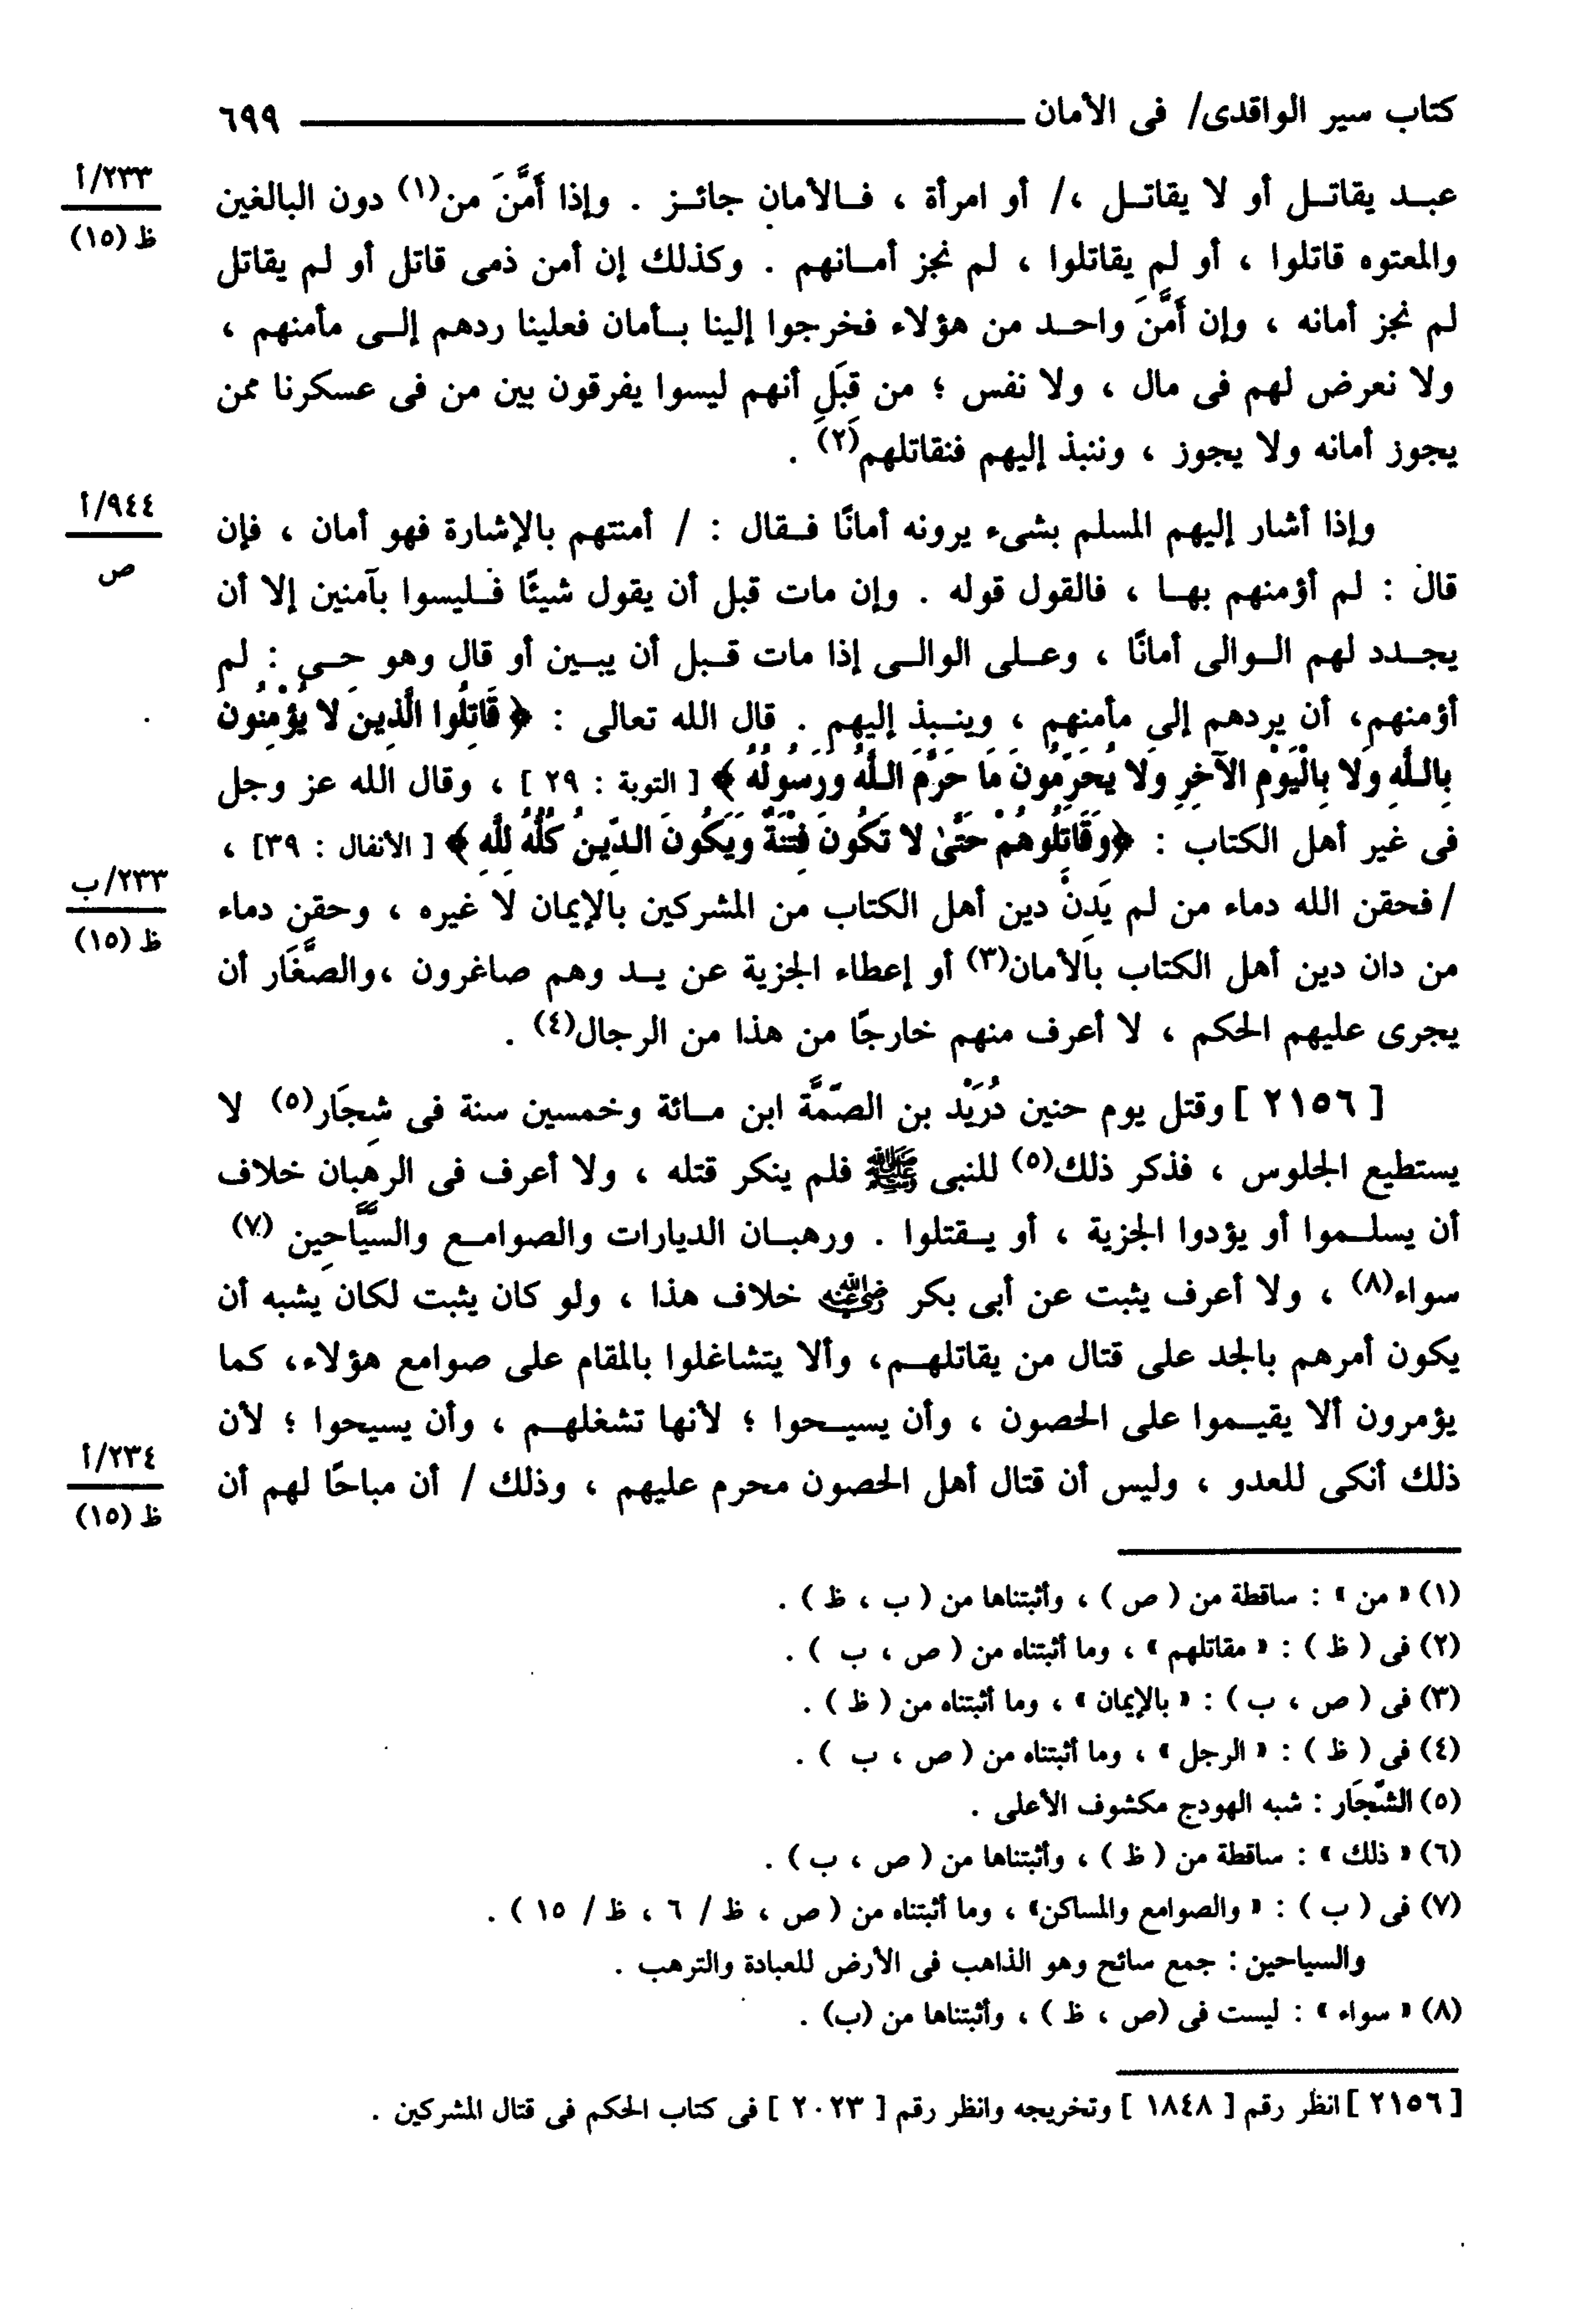 كتاب سير الواقدى/ فى الأمان ــــــــــ ٦٩٩
٢٣٣/أ
ظ (١٥)
عبد يقاتل أو لا يقاتل ،/ أو امرأة ، فالأمان جائز . وإذا أَمَّنَ من(١) دون البالغين
والمعتوه قاتلوا ، أو لم يقاتلوا ، لم نجز أمانهم . وكذلك إن أمن ذمى قاتل أو لم يقاتل
لم نجز أمانه ، وإن أَمَّنَ واحد من هؤلاء فخرجوا إلينا بأمان فعلينا ردهم إلى مأمنهم ،
ولا نعرض لهم فى مال ، ولا نفس ؛ من قِبَلِ أنهم ليسوا يفرقون بين من فى عسكرنا ممن
يجوز أمانه ولا يجوز ، وننبذ إليهم فنقاتلهم(٢) .
٩٤٤/أ
ص
وإذا أشار إليهم المسلم بشىء يرونه أمانًا فقال : / أمنتهم بالإشارة فهو أمان ، فإن
قال : لم أؤمنهم بها ، فالقول قوله . وإن مات قبل أن يقول شيئًا فليسوا بآمنين إلا أن
يجدد لهم الوالى أمانًا ، وعلى الوالى إذا مات قبل أن يبين أو قال وهو حى : لم
أؤمنهم، أن يردهم إلى مأمنهم ، وينبذ إليهم . قال الله تعالى : ﴿ قَاتِلُوا الَّذِينَ لا يُؤْمِنُونَ
بِاللَّهِ وَلا بِالْيَوْمِ الآخِرِ وَلا يُحَرِّمُونَ مَا حَرَّمَ اللَّهُ وَرَسُولُهُ ﴾ [ التوبة : ٢٩ ] ، وقال الله عز وجل
فى غير أهل الكتاب : ﴿وَقَاتِلُوهُمْ حَتَّىٰ لا تَكُونَ فِتْنَةٌ وَيَكُونَ الدِّينُ كُلُّهُ لِلَّهِ ﴾ [ الأنفال : ٣٩] ،
٢٣٣/ب
ظ (١٥)
/ فحقن الله دماء من لم يَدِنْ دين أهل الكتاب من المشركين بالإيمان لا غيره ، وحقن دماء
من دان دين أهل الكتاب بالأمان(٣) أو إعطاء الجزية عن يد وهم صاغرون ،والصَّغَار أن
يجرى عليهم الحكم ، لا أعرف منهم خارجًا من هذا من الرجال(٤) .
[ ٢١٥٦ ] وقتل يوم حنين دُرَيْد بن الصِّمَّة ابن مائة وخمسين سنة فى شِجَار(٥) لا
يستطيع الجلوس ، فذكر ذلك(٥) للنبى ﷺ فلم ينكر قتله ، ولا أعرف فى الرهبان خلاف
أن يسلموا أو يؤدوا الجزية ، أو يقتلوا . ورهبان الديارات والصوامع والسيَّاحِين (٧)
سواء(٨) ، ولا أعرف يثبت عن أبى بكر رضي الله عنه خلاف هذا ، ولو كان يثبت لكان يشبه أن
يكون أمرهم بالجد على قتال من يقاتلهم، وألا يتشاغلوا بالمقام على صوامع هؤلاء، كما
يؤمرون ألا يقيموا على الحصون ، وأن يسيحوا ؛ لأنها تشغلهم ، وأن يسيحوا ؛ لأن
٢٣٤/أ
ظ (١٥)
ذلك أنكى للعدو ، وليس أن قتال أهل الحصون محرم عليهم ، وذلك / أن مباحًا لهم أن
(١) « من » : ساقطة من ( ص ) ، وأثبتناها من ( ب ، ظ ) .
(٢) فى ( ظ ) : « مقاتلهم » ، وما أثبتناه من ( ص ، ب ) .
(٣) فى ( ص ، ب ) : « بالإيمان » ، وما أثبتناه من ( ظ ) .
(٤) فى ( ظ ) : « الرجل » ، وما أثبتناه من ( ص ، ب ) .
(٥) الشِّجَار : شبه الهودج مكشوف الأعلى .
(٦) « ذلك » : ساقطة من ( ظ ) ، وأثبتناها من ( ص ، ب ) .
(٧) فى ( ب ) : « والصوامع والمساكن» ، وما أثبتناه من ( ص ، ظ / ٦ ، ظ / ١٥ ) .
والسياحين : جمع سائح وهو الذاهب فى الأرض للعبادة والترهب .
(٨) « سواء » : ليست فى (ص ، ظ ) ، وأثبتناها من (ب) .
[ ٢١٥٦ ] انظر رقم [ ١٨٤٨ ] وتخريجه وانظر رقم [ ٢٠٢٣ ] فى كتاب الحكم فى قتال المشركين .